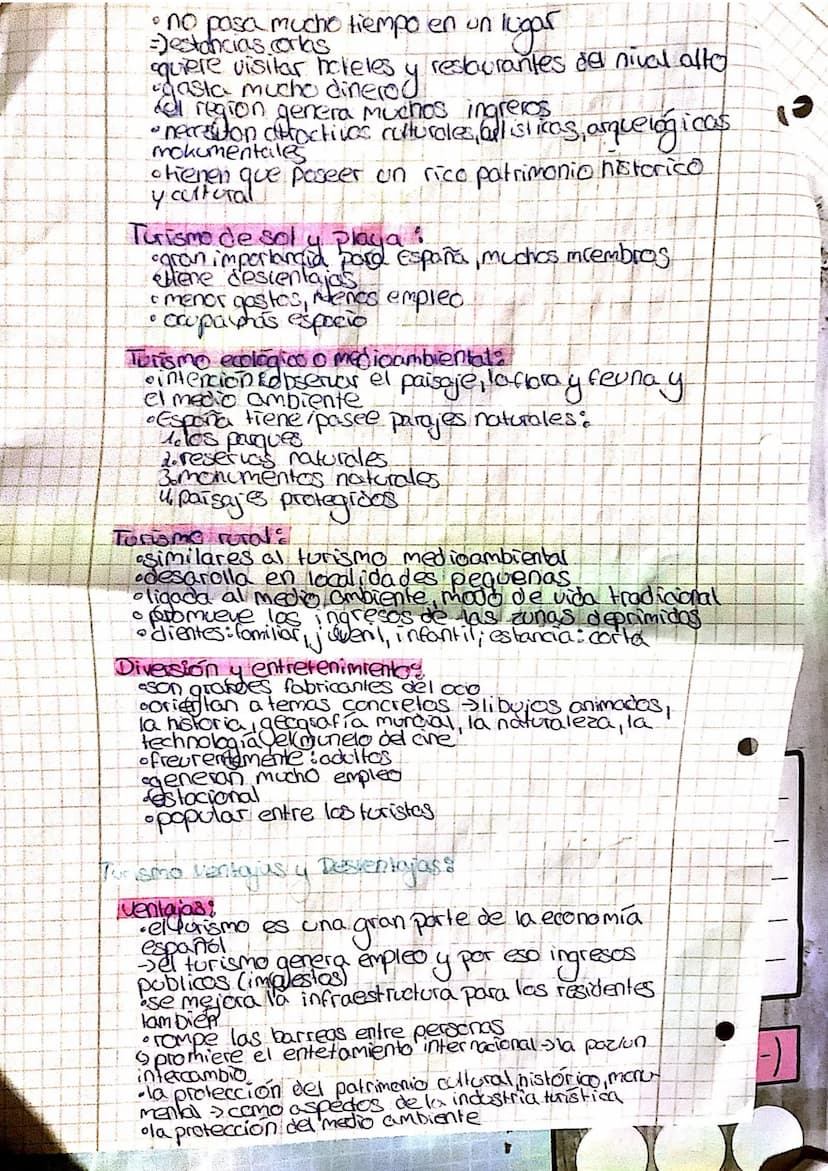 • no pasa mucho tiempo en un lugar
⇒ estancias cortas
• quiere visitar hoteles y restaurantes del nival alto
• gasta mucho dinero
region genera muchos ingreros
• necesitan attractivos culturales, artísticas, arquelógicas
mokumentales
• tienen que poseer un rico patrimonio historico
y cultural
Turismo de sol y playa:
• gran importancia para España, muchos miembros
• tiene desventajas
• menor gastos, menos empleo
• ocupa más espacio
Turismo ecológico o medioambiental:
• intención: observar el paisaje, la flora y feuna y
el medio ambiente
• España tiene/pasee parajes naturales:
1. los parques
2. reservas naturales
3. monumentos naturales
4. paisajes protegidos
Turismo rural:
• similares al turismo medioambiental
• desarolla en localidades pequenas
• ligada al medio ambiente, modo de vida tradicional
• promueve los ingresos de las zunas deprimidas
• clientes: familiar, juvenil, infantil; estancia: corta
Diversión y entretenimiento:
• son grandes fabricantes del ocio
• orientan a temas concretos → libujos animados,
la historia, geografía muncial, la naturaleza, la
technologia, el munelo del cine
• freurentemente: adultos
• generan mucho empleo
estacional
• popular entre los turistas
Turismo ventajas y Desventajas:
Ventajas:
• el turismo es una gran parte de la economía
español
→ el turismo genera empleo y por eso ingresos
públicos (impuestos)
• se mejora la infraestructura para los residentes
también
• rompe las barreas entre personas
↳ promiere el internacional → la paz/un
intercambio
• la protección del patrimonio cultural, histórico, monu-
mental → como aspectos de la industria turística
• la protección del medio ambiente